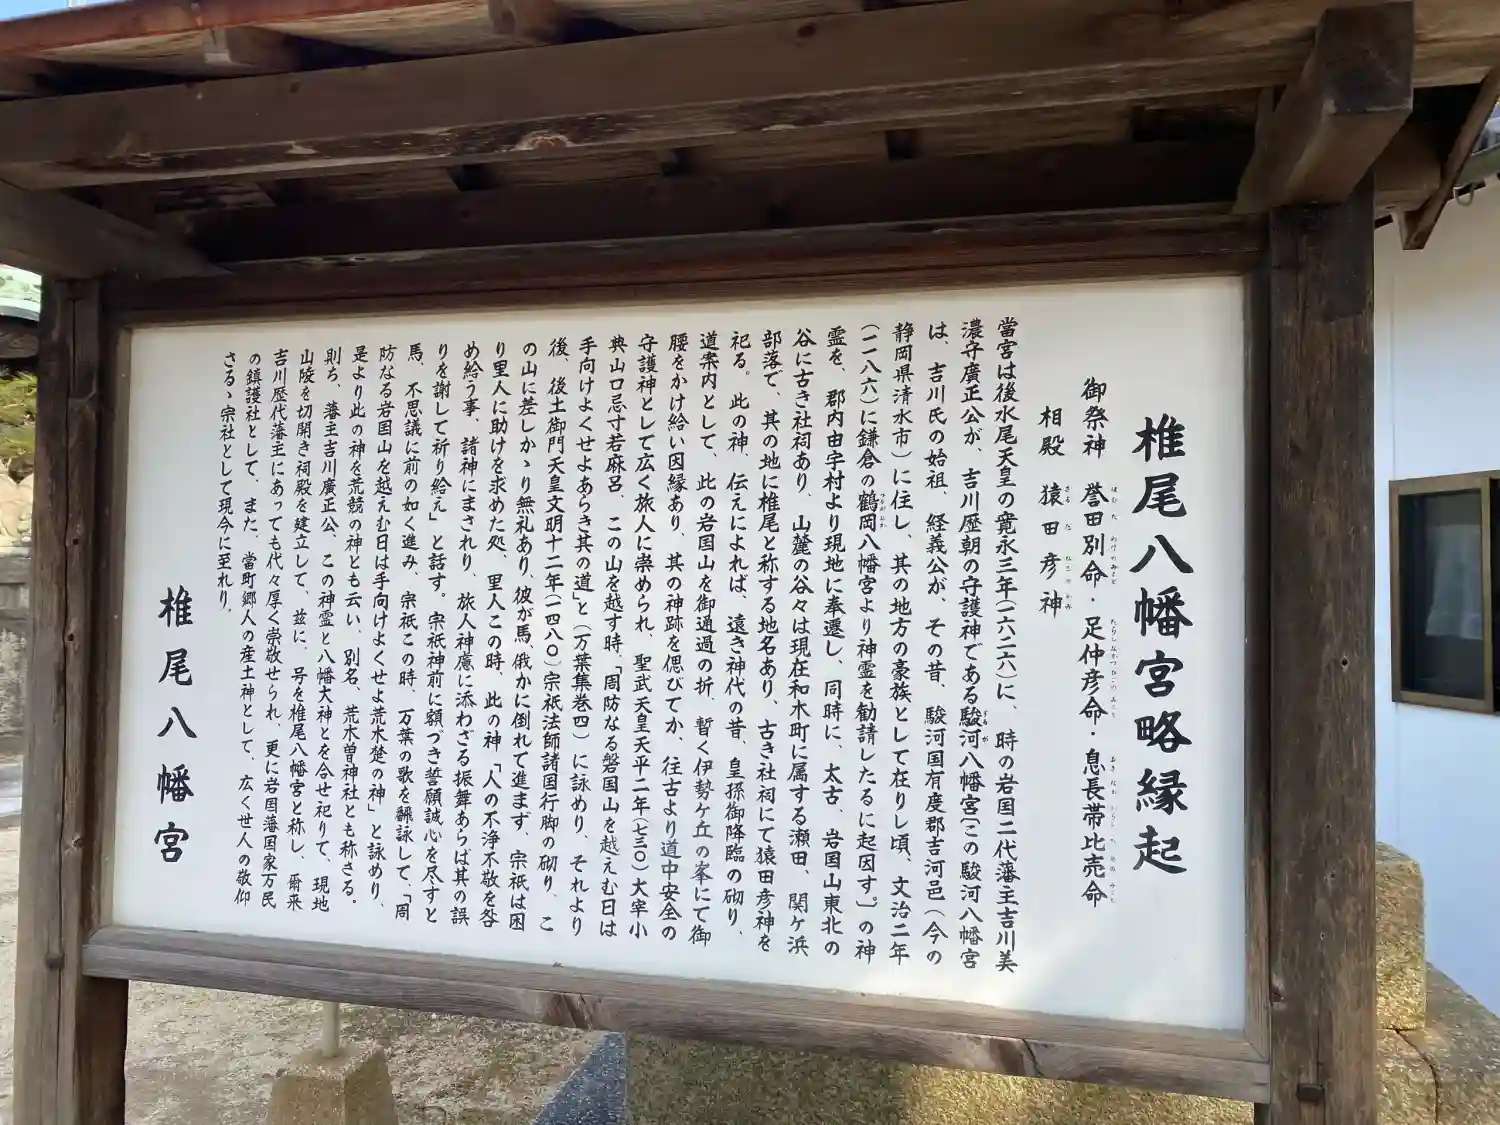 椎尾八幡宮略縁起
御祭神 誉田別命・足仲彦命・息長帯比売命
相殿 猿田彦神
當宮は後水尾天皇の寛永三年(一六二六)に、時の岩国二代藩主吉川美
濃守廣正公が、吉川歴朝の守護神である駿河八幡宮〔この駿河八幡宮
は、吉川氏の始祖、経義公が、その昔、駿河国有度郡吉河邑(今の
静岡県清水市)に住し、其の地方の豪族として在りし頃、文治二年
(一一八六)に鎌倉の鶴岡八幡宮より神霊を勧請したるに起因す。〕の神
霊を、郡内由宇村より現地に奉遷し、同時に、太古、岩国山東北の
谷に古き社祠あり、山麓の谷々は現在和木町に属する瀬田、関ヶ浜
部落で、其の地に椎尾と称する地名あり、古き社祠にて猿田彦神を
祀る。此の神、伝えによれば、遠き神代の昔、皇孫御降臨の砌り、
道案内として、此の岩国山を御通過の折、暫く伊勢ケ丘の峯にて御
腰をかけ給い因縁あり、其の神跡を偲びてか、往古より道中安全の
守護神として広く旅人に崇められ、聖武天皇天平二年(七三〇)大宰小
典山口忌寸若麻呂、この山を越す時、「周防なる磐国山を越えむ日は
手向けよくせよあらき其の道」と(万葉集巻四)に詠めり、それより
後、後土御門天皇文明十二年(一四八〇)宗祇法師諸国行脚の砌り、こ
の山に差しかゝり無礼あり、彼が馬、俄かに倒れて進まず、宗祇は困
り里人に助けを求めた処、里人この時、此の神「人の不浄不敬を咎
め給う事、諸神にまされり、旅人神慮に添わざる振舞あらば其の誤
りを謝して祈り給え」と話す。宗祇神前に額づき誓願誠心を尽すと
馬、不思議に前の如く進み、宗祇この時、万葉の歌を飜詠して、「周
防なる岩国山を越えむ日は手向けよくせよ荒木楚の神」と詠めり、
是より此の神を荒競の神とも云い、別名、荒木曽神社とも称さる。
則ち、藩主吉川廣正公、この神霊と八幡大神とを合せ祀りて、現地
山陵を切開き祠殿を建立して、茲に、号を椎尾八幡宮と称し、爾来
吉川歴代藩主にあっても代々厚く崇敬せられ、更に岩国藩国家万民
の鎮護社として、また、當町郷人の産土神として、広く世人の敬仰
さるゝ宗社として現今に至れり。
椎尾八幡宮